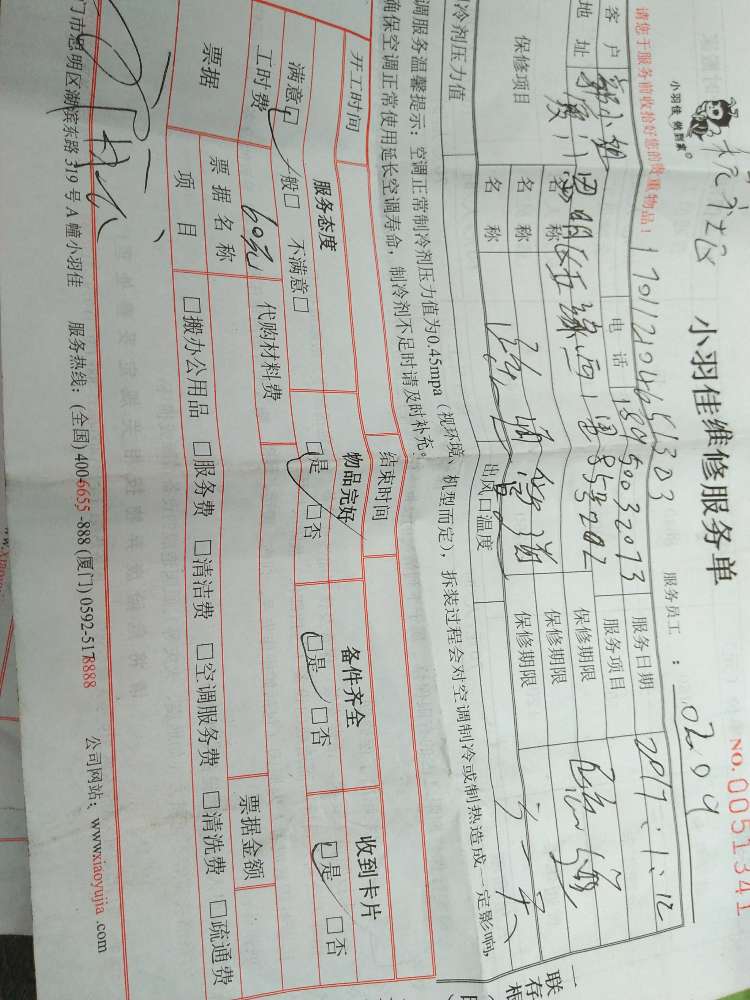 小羽佳 做到家®
小羽佳维修服务单
NO.0051341
服务员工：0209
请您于服务前收拾好您的贵重物品！
170112104651303
客户 郭小姐 电话 18950032073 服务日期 2017.1.12
地址 厦门思明区 服务项目
保修项目 名称 保修期限
名称 保修期限
名称 保修期限
制冷剂压力值 出风口温度
调服务温馨提示：空调正常制冷剂压力值为0.45mpa（视环境、机型而定），拆装过程会对空调制冷或制热造成一定影响,
确保空调正常使用延长空调寿命，制冷剂不足时请及时补充。
开工时间 结束时间
服务态度 物品完好 备件齐全 收到卡片
满意□ 一般□ 不满意□ □是 □否 □是 □否 □是 □否
工时费 60元 代购材料费
票据 票据名称 票据金额
项目 □搬办公用品 □服务费 □清洁费 □空调服务费 □清洗费 □疏通费
门市思明区湖滨东路 319 号 A 幢小羽佳 服务热线：(全国) 400-6655 -888 (厦门) 0592-5178888 公司网站：www.xiaoyujia .com
一联
存根